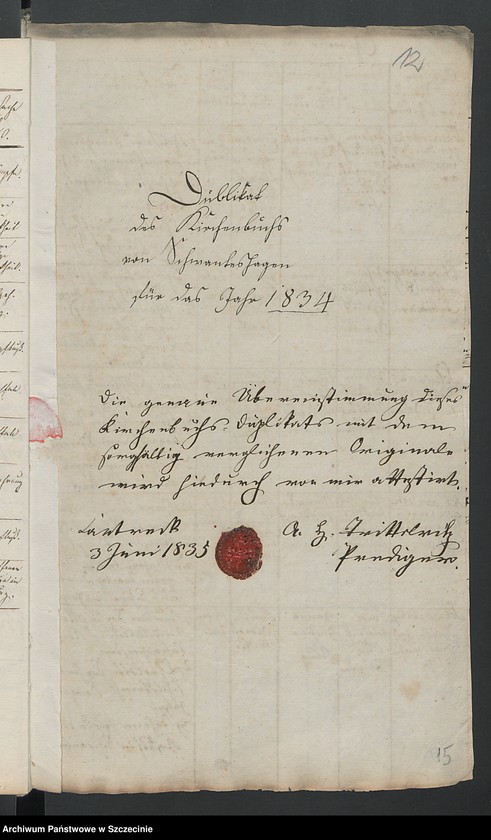 12
Duplikat
des Kirchenbuchs
von Schwanteshagen
für das Jahr 1834
Die genaue Übereinstimmung dieses
Kirchenbuchs-Duplikats mit dem
sorgfältig verglichenen Originale
wird hiedurch von mir attestirt.
3 Juni 1835
A. H.
Prediger.
15
Archiwum Państwowe w Szczecinie